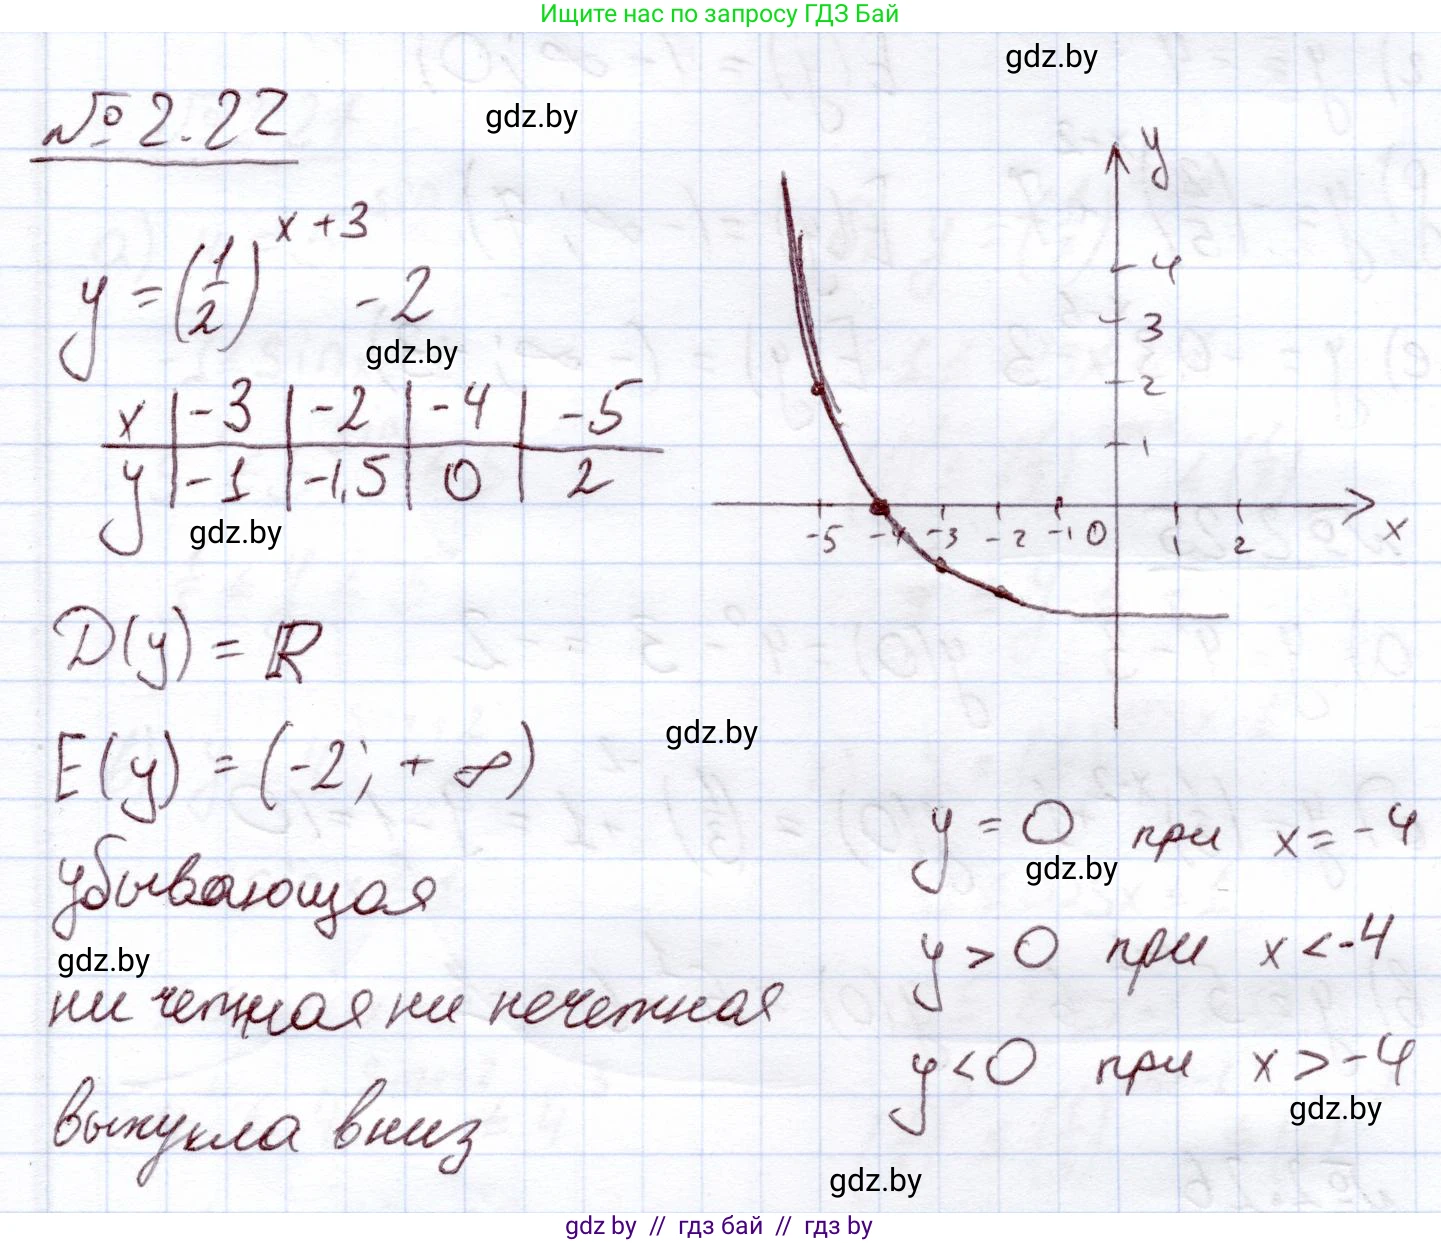 Ищите нас по запросу ГДЗ Бай
gdz.by
№ 2.22
gdz.by
y = (1/2)^(x+3) - 2
gdz.by
x | -3 | -2 | -4 | -5
y | -1 | -1,5 | 0 | 2
gdz.by
y
4
3
2
1
-5 -4 -3 -2 -1 0 1 2 x
D(y) = ℝ
E(y) = (-2; +∞)
gdz.by
убывающая
gdz.by
ни четная ни нечетная
выпукла вниз
y = 0 при x = -4
gdz.by
y > 0 при x < -4
y < 0 при x > -4
gdz.by
gdz.by
gdz by // гдз бай // гдз by